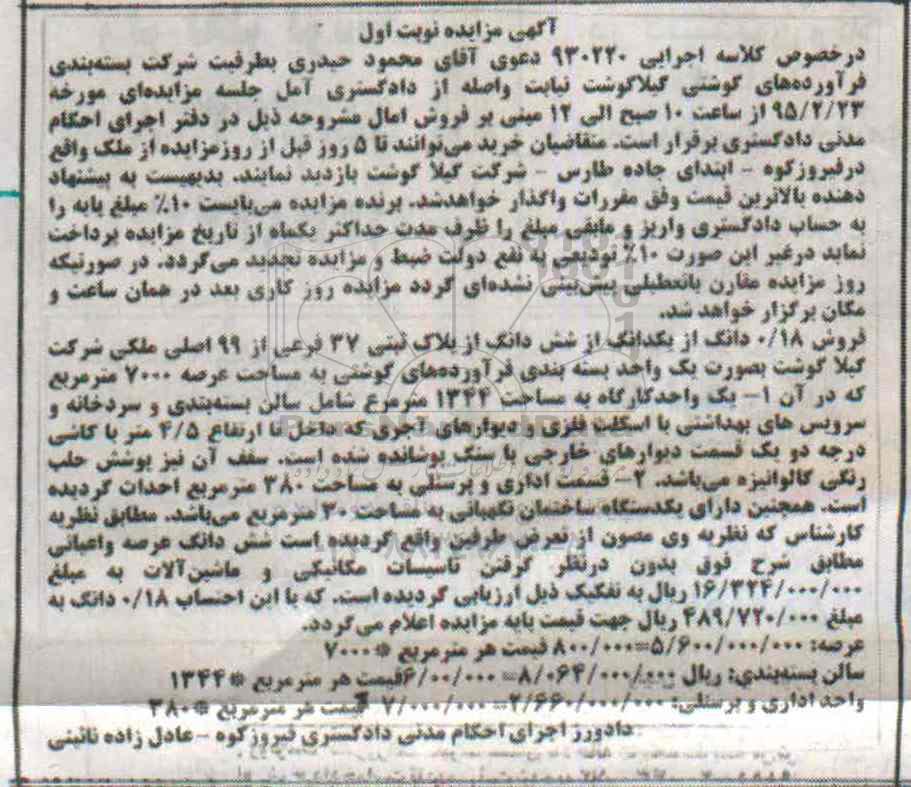 آگهی مزایده نوبت اول
درخصوص کلاسه اجرایی ۹۳۰۲۲۰ دعوی آقای محمود حیدری بطرفیت شرکت بسته‌بندی
فرآورده‌های گوشتی گیلاگوشت نیابت واصله از دادگستری آمل جلسه مزایده‌ای مورخه
۹۵/۲/۲۳ از ساعت ۱۰ صبح الی ۱۲ مبنی بر فروش امال مشروحه ذیل در دفتر اجرای احکام
مدنی دادگستری برقرار است. متقاضیان خرید می‌توانند تا ۵ روز قبل از روزمزایده از ملک واقع
درفیروزکوه - ابتدای جاده طارس - شرکت گیلا گوشت بازدید نمایند. بدیهیست به پیشنهاد
دهنده بالاترین قیمت وفق مقررات واگذار خواهدشد. برنده مزایده می‌بایست ۱۰٪ مبلغ پایه را
به حساب دادگستری واریز و مابقی مبلغ را ظرف مدت حداکثر یکماه از تاریخ مزایده پرداخت
نماید درغیر این صورت ۱۰٪ تودیعی به نفع دولت ضبط و مزایده تجدید می‌گردد. در صورتیکه
روز مزایده مقارن باتعطیلی پیش‌بینی نشده‌ای گردد مزایده روز کاری بعد در همان ساعت و
مکان برگزار خواهد شد.
فروش ۰/۱۸ دانگ از یکدانگ از شش دانگ از پلاک ثبتی ۳۷ فرعی از ۹۹ اصلی ملکی شرکت
گیلا گوشت بصورت یک واحد بسته بندی فرآورده‌های گوشتی به مساحت عرصه ۷۰۰۰ مترمربع
که در آن ۱- یک واحدکارگاه به مساحت ۱۳۴۴ مترمرع شامل سالن بسته‌بندی و سردخانه و
سرویس های بهداشتی با اسکلت فلزی و دیوارهای آجری که داخل تا ارتفاع ۴/۵ متر با کاشی
درجه دو یک قسمت دیوارهای خارجی با سنگ پوشانده شده است. سقف آن نیز پوشش حلب
رنگی گالوانیزه می‌باشد. ۲- قسمت اداری و پرسنلی به مساحت ۳۸۰ مترمربع احداث گردیده
است. همچنین دارای یکدستگاه ساختمان نگهبانی به مساحت ۳۰ مترمربع می‌باشد. مطابق نظریه
کارشناس که نظریه وی مصون از تعرض طرفین واقع گردیده است شش دانگ عرصه واعیانی
مطابق شرح فوق بدون درنظر گرفتن تاسیسات مکانیکی و ماشین‌آلات به مبلغ
۱۶/۳۲۴/۰۰۰/۰۰۰ ریال به تفکیک ذیل ارزیابی گردیده است. که با این احتساب ۰/۱۸ دانگ به
مبلغ ۴۸۹/۷۲۰/۰۰۰ ریال جهت قیمت پایه مزایده اعلام می‌گردد.
عرصه: ۵/۶۰۰/۰۰۰/۰۰۰=۸۰۰/۰۰۰ قیمت هر مترمربع *۷۰۰۰
سالن بسته‌بندی: ریال ۸/۰۶۴/۰۰۰/۰۰۰= ۶/۰۰/۰۰۰قیمت هر مترمربع *۱۳۴۴
واحد اداری و پرسنلی: ۲/۶۶۰/۰۰۰/۰۰۰= ۷/۰۰۰/۰۰۰ قیمت هر مترمربع *۳۸۰
دادورز اجرای احکام مدنی دادگستری فیروزکوه - عادل زاده نائینی